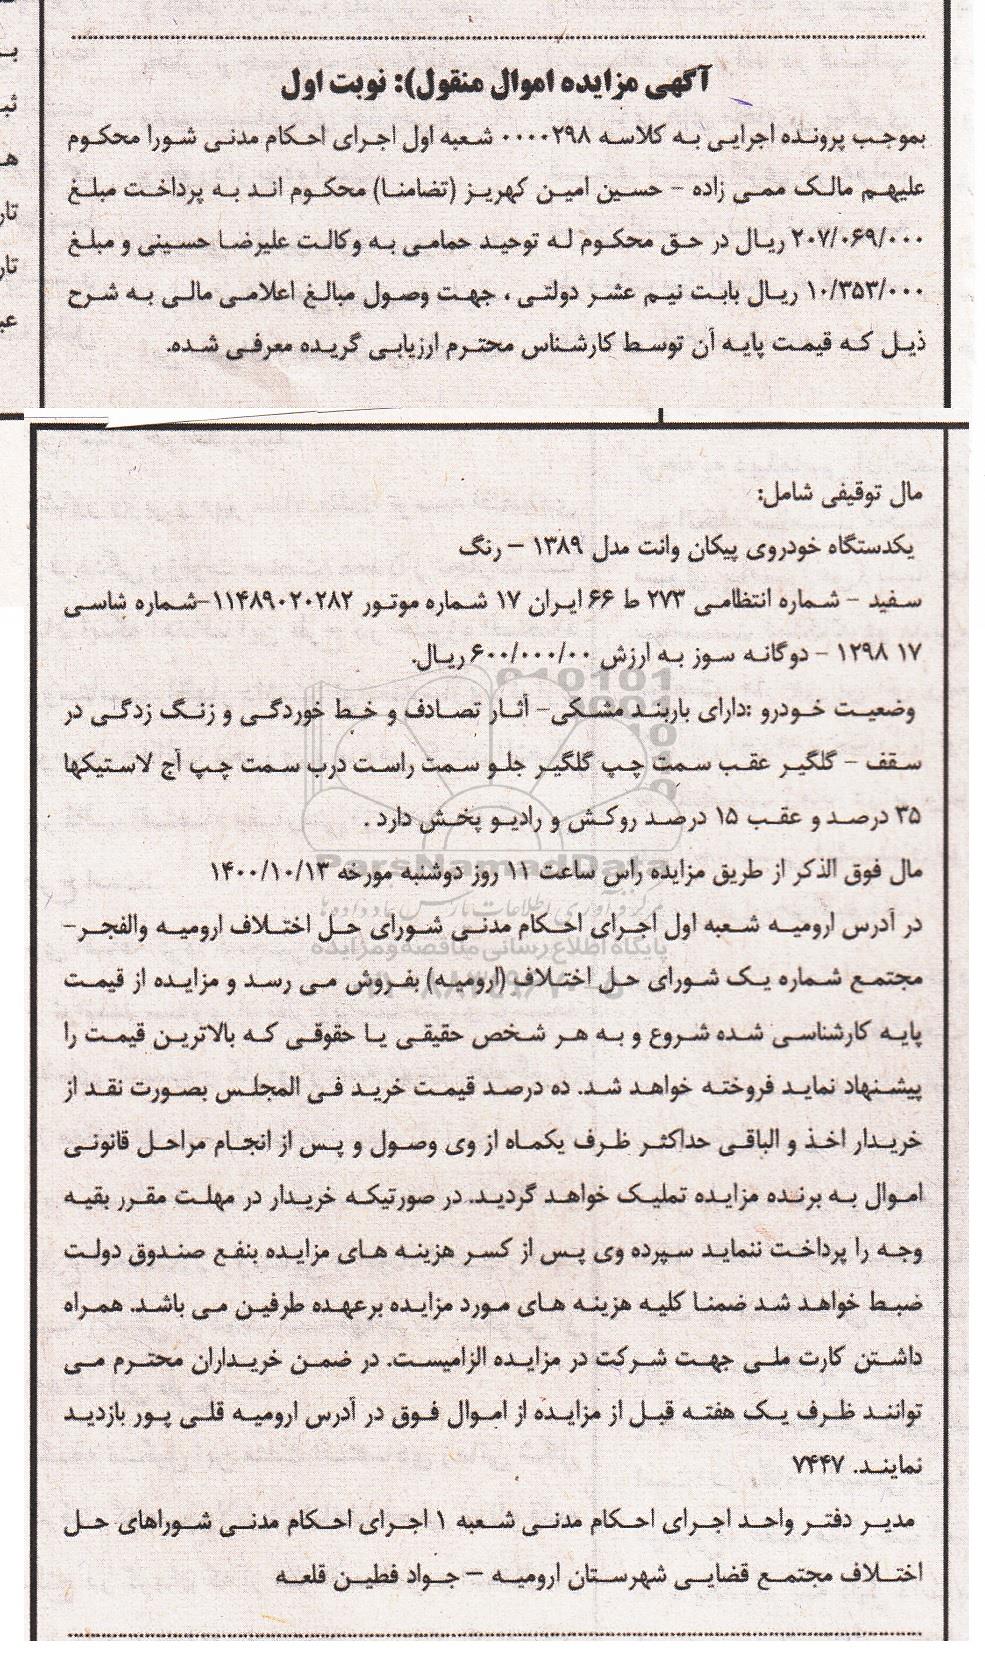 آگهی مزایده اموال منقول): نوبت اول
بموجب پرونده اجرایی به کلاسه ۰۰۰۰۲۹۸ شعبه اول اجرای احکام مدنی شورا محکوم
علیهم مالک ممی زاده – حسین امین کهریز (تضامنا) محکوم اند به پرداخت مبلغ
۲۰۷/۰۶۹/۰۰۰ ریال در حق محکوم له توحید حمامی به وکالت علیرضا حسینی و مبلغ
۱۰/۳۵۳/۰۰۰ ریال بابت نیم عشر دولتی ، جهت وصول مبالغ اعلامی مالی به شرح
ذیل که قیمت پایه آن توسط کارشناس محترم ارزیابی گریده معرفی شده.
مال توقیفی شامل:
یکدستگاه خودروی پیکان وانت مدل ۱۳۸۹ – رنگ
سفید – شماره انتظامی ۲۷۳ ط ۶۶ ایران ۱۷ شماره موتور ۱۱۴۸۹۰۲۰۲۸۲-شماره شاسی
۱۷ ۱۲۹۸ – دوگانه سوز به ارزش ۶۰۰/۰۰۰/۰۰ ریال.
وضعیت خودرو :دارای باربند مشکی- آثار تصادف و خط خوردگی و زنگ زدگی در
سقف – گلگیر عقب سمت چپ گلگیر جلو سمت راست درب سمت چپ آج لاستیکها
۳۵ درصد و عقب ۱۵ درصد روکش و رادیو پخش دارد .
مال فوق الذکر از طریق مزایده راس ساعت ۱۱ روز دوشنبه مورخه ۱۴۰۰/۱۰/۱۳
در آدرس ارومیه شعبه اول اجرای احکام مدنی شورای حل اختلاف ارومیه والفجر-
مجتمع شماره یک شورای حل اختلاف (ارومیه) بفروش می رسد و مزایده از قیمت
پایه کارشناسی شده شروع و به هر شخص حقیقی یا حقوقی که بالاترین قیمت را
پیشنهاد نماید فروخته خواهد شد. ده درصد قیمت خرید فی المجلس بصورت نقد از
خریدار اخذ و الباقی حداکثر ظرف یکماه از وی وصول و پس از انجام مراحل قانونی
اموال به برنده مزایده تملیک خواهد گردید. در صورتیکه خریدار در مهلت مقرر بقیه
وجه را پرداخت ننماید سپرده وی پس از کسر هزینه های مزایده بنفع صندوق دولت
ضبط خواهد شد ضمنا کلیه هزینه های مورد مزایده برعهده طرفین می باشد. همراه
داشتن کارت ملی جهت شرکت در مزایده الزامیست. در ضمن خریداران محترم می
توانند ظرف یک هفته قبل از مزایده از اموال فوق در آدرس ارومیه قلی پور بازدید
نمایند. ۷۴۴۷
مدیر دفتر واحد اجرای احکام مدنی شعبه ۱ اجرای احکام مدنی شوراهای حل
اختلاف مجتمع قضایی شهرستان ارومیه – جواد فطین قلعه
ParsNamadData
پایگاه اطلاع رسانی مناقصه و مزایده